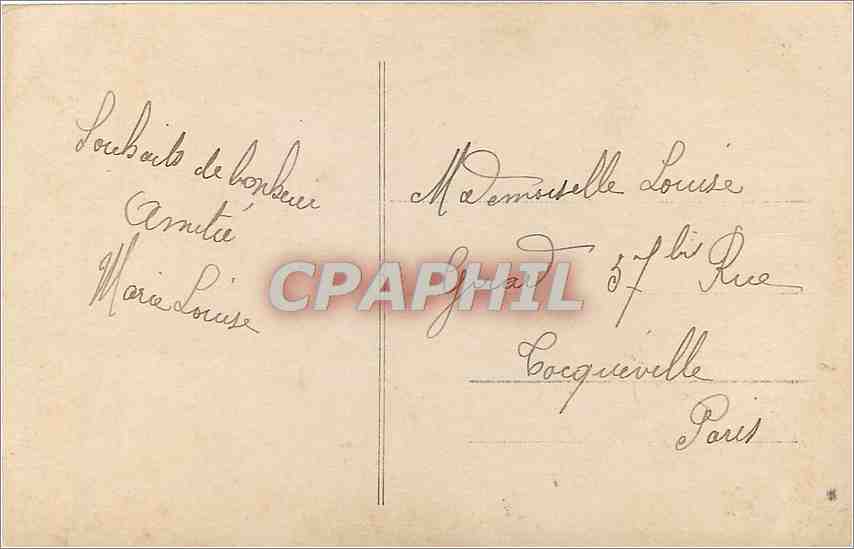 Souhaits de bonheur
Amitié
Marie Louise
Mademoiselle Louise
57 bis Rue
Tocqueville
Paris
CPAPHIL